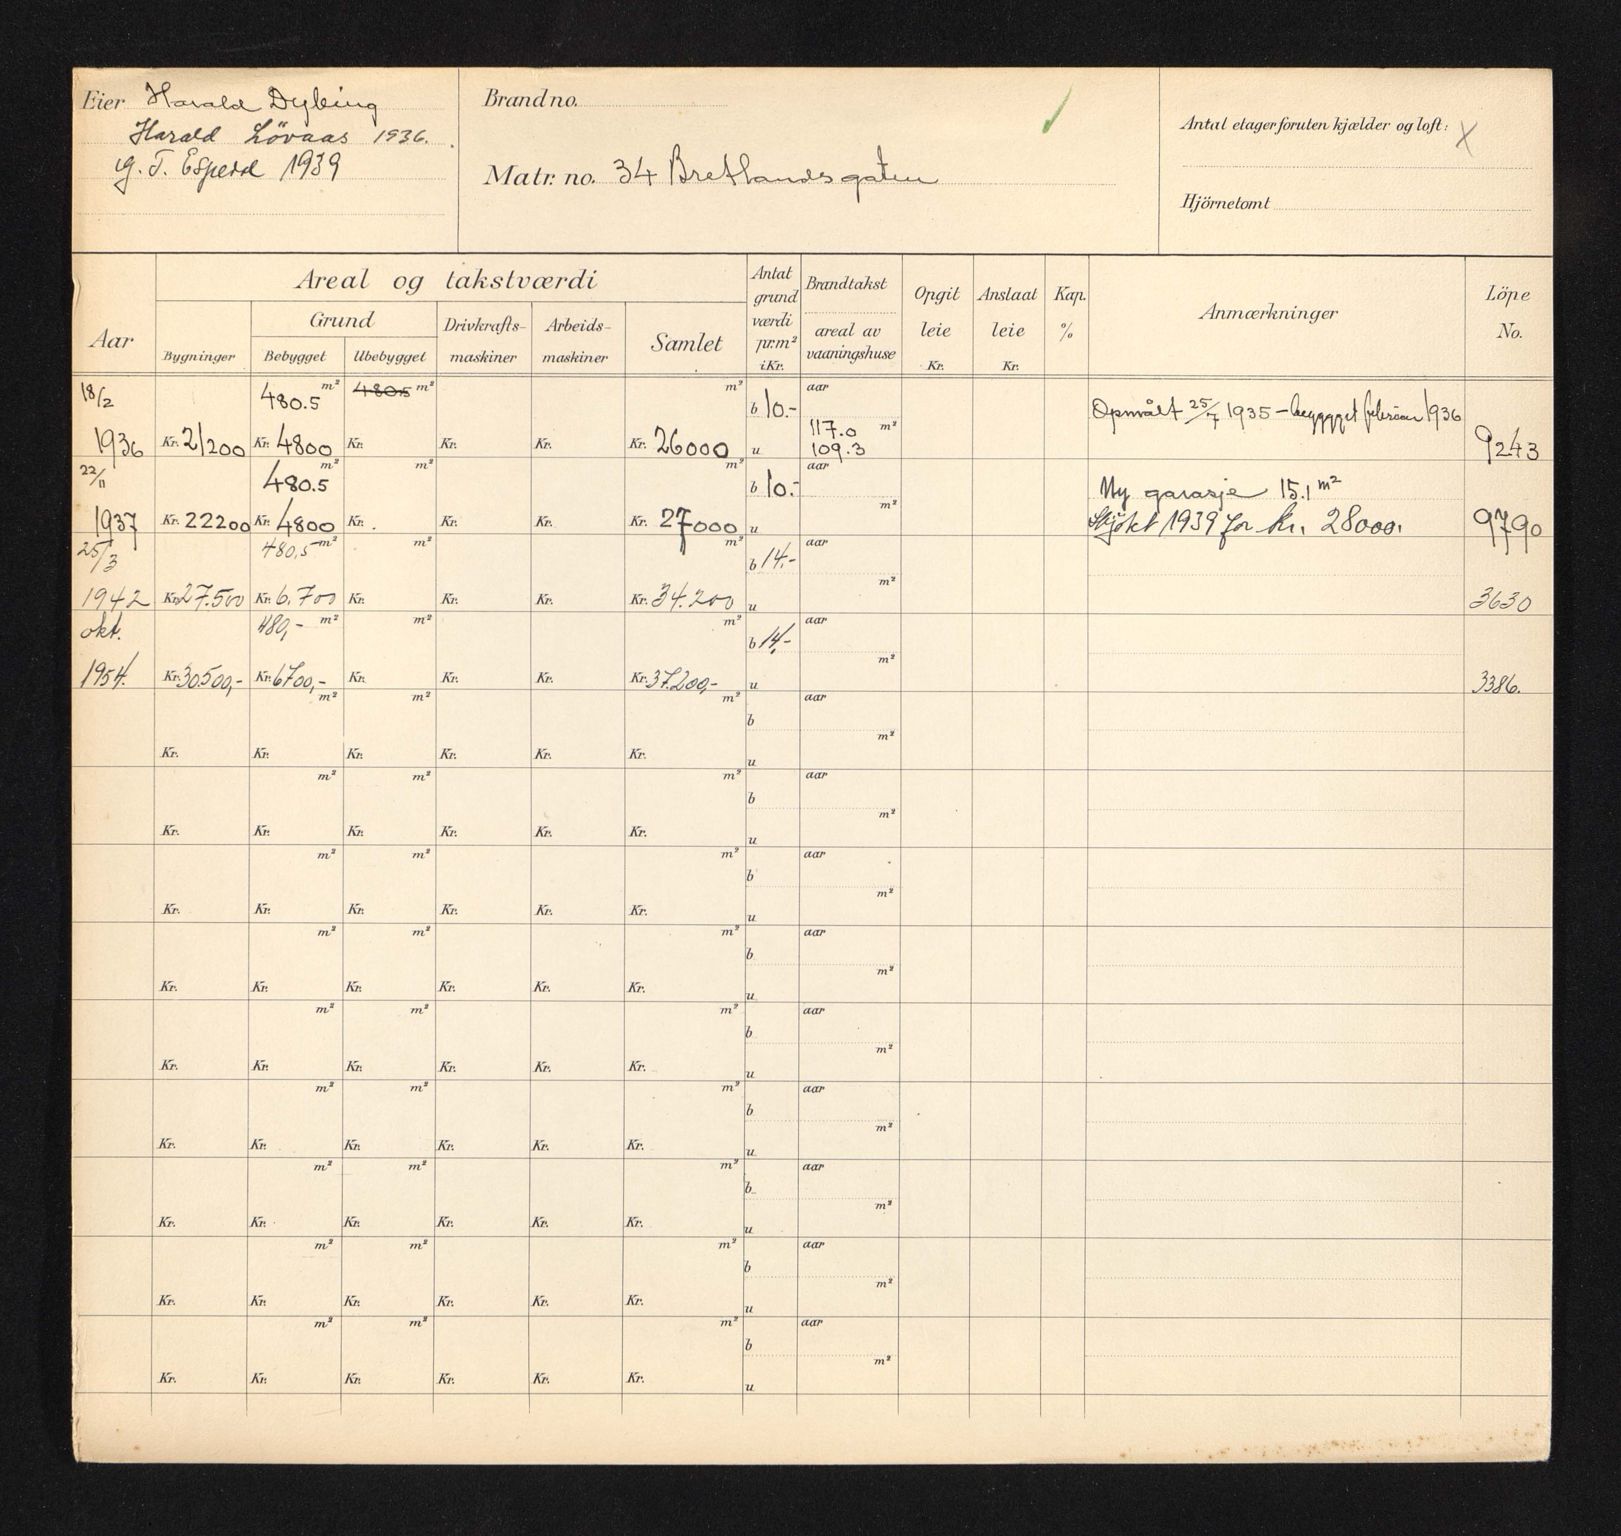 Eier Harald Dybing
Harald Lövaas 1936.
G. T. Espeda 1939
Brand no.
Matr. no. 34 Bretlandsgaten
Antal etager foruten kjælder og loft: X
Hjörnetomt
Areal og takstværdi
Grund
Aar
Bygninger
Bebygget
Ubebygget
Drivkrafts-
maskiner
Arbeids-
maskiner
Samlet
Antat
grund
værdi
pr. m²
i Kr.
Brandtakst
areal av
vaaningshuse
Opgit
leie
Kr.
Anslaat
leie
Kr.
Kap.
%
Anmærkninger
Löpe
No.
18/2 480.5 m² 480.5 m² m² b 10.- aar Opmålt 25/7 1935 – bygget februar 1936
1936 Kr. 21200 Kr. 4800 Kr. Kr. Kr. Kr. 26000 u 117.0 m² 109.3 9243
22/11 480.5 m² m² m² b 10.- aar Ny garasje 15.1 m²
1937 Kr. 22200 Kr. 4800 Kr. Kr. Kr. Kr. 27000 u m² Skjökt 1939 for kr. 28000. 9790
25/3 480,5 m² m² m² b 14.- aar
1942 Kr. 27.500 Kr. 6.700 Kr. Kr. Kr. Kr. 34.200 u m² 3630
okt. 480,- m² m² m² b 14,- aar
1954. Kr. 30500,- Kr. 6700,- Kr. Kr. Kr. Kr. 37.200,- u m² 3386.
m² m² m² b aar
Kr. Kr. Kr. Kr. Kr. Kr. u m²
m² m² m² b aar
Kr. Kr. Kr. Kr. Kr. Kr. u m²
m² m² m² b aar
Kr. Kr. Kr. Kr. Kr. Kr. u m²
m² m² m² b aar
Kr. Kr. Kr. Kr. Kr. Kr. u m²
m² m² m² b aar
Kr. Kr. Kr. Kr. Kr. Kr. u m²
m² m² m² b aar
Kr. Kr. Kr. Kr. Kr. Kr. u m²
m² m² m² b aar
Kr. Kr. Kr. Kr. Kr. Kr. u m²
m² m² m² b aar
Kr. Kr. Kr. Kr. Kr. Kr. u m²
m² m² m² b aar
Kr. Kr. Kr. Kr. Kr. Kr. u m²